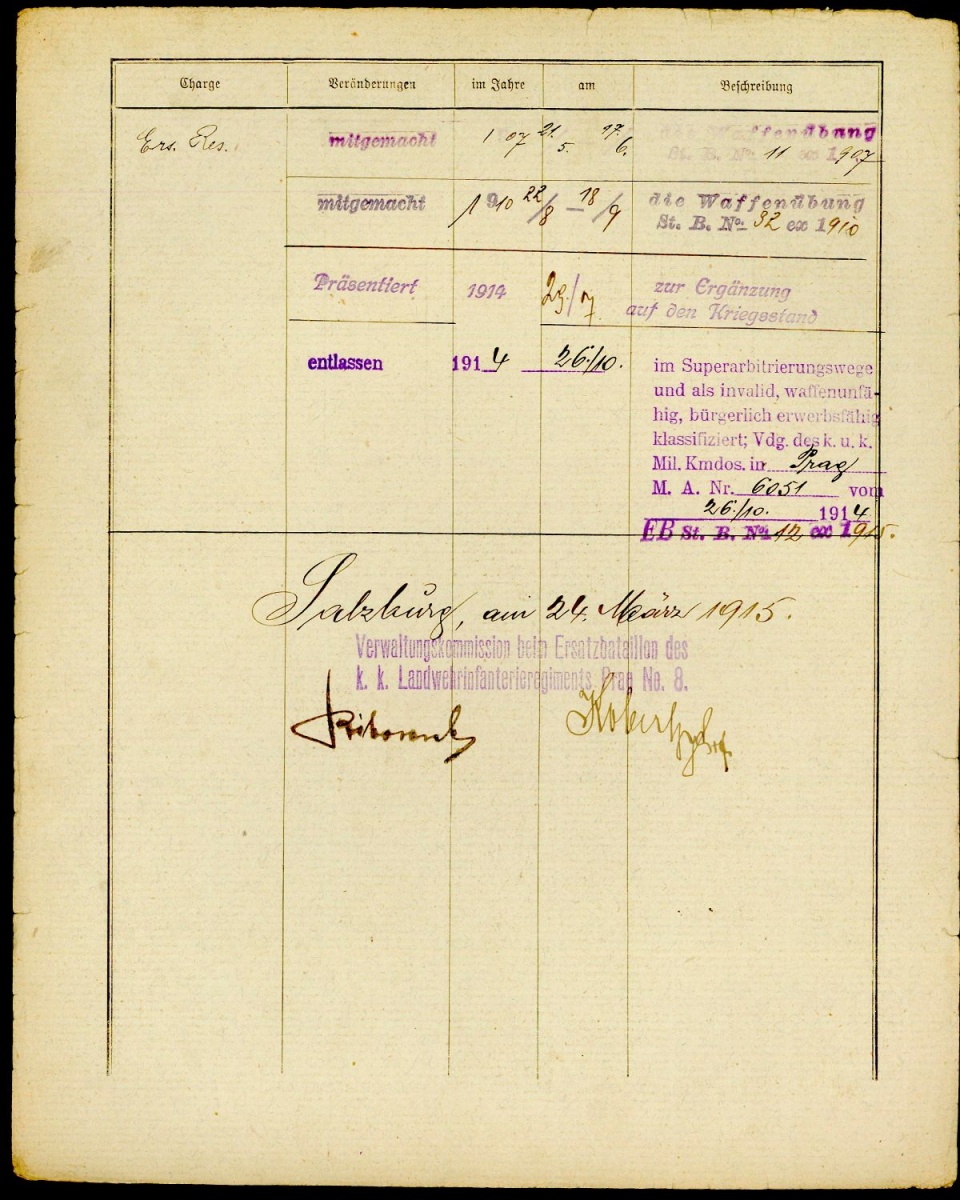 Charge Veränderungen im Jahre am Beschreibung
Ers. Res. mitgemacht 1907 21./5. 17./6. die Waffenübung
St. B. No. 11 ex 1907
mitgemacht 1910 22/8 – 18/9 die Waffenübung
St. B. No. 32 ex 1910
Präsentiert 1914 29./7. zur Ergänzung
auf den Kriegsstand
entlassen 1914 26./10. im Superarbitrierungswege
und als invalid, waffenunfä-
hig, bürgerlich erwerbsfähig
klassifiziert; Vdg. des k. u. k.
Mil. Kmdos. in Prag
M. A. Nr. 6051 vom
26./10. 1914
EB St. B. No. 12 ex 1915.
Salzburg, am 24. März 1915.
Verwaltungskommission beim Ersatzbataillon des
k. k. Landwehrinfanterieregiments Prag No. 8.